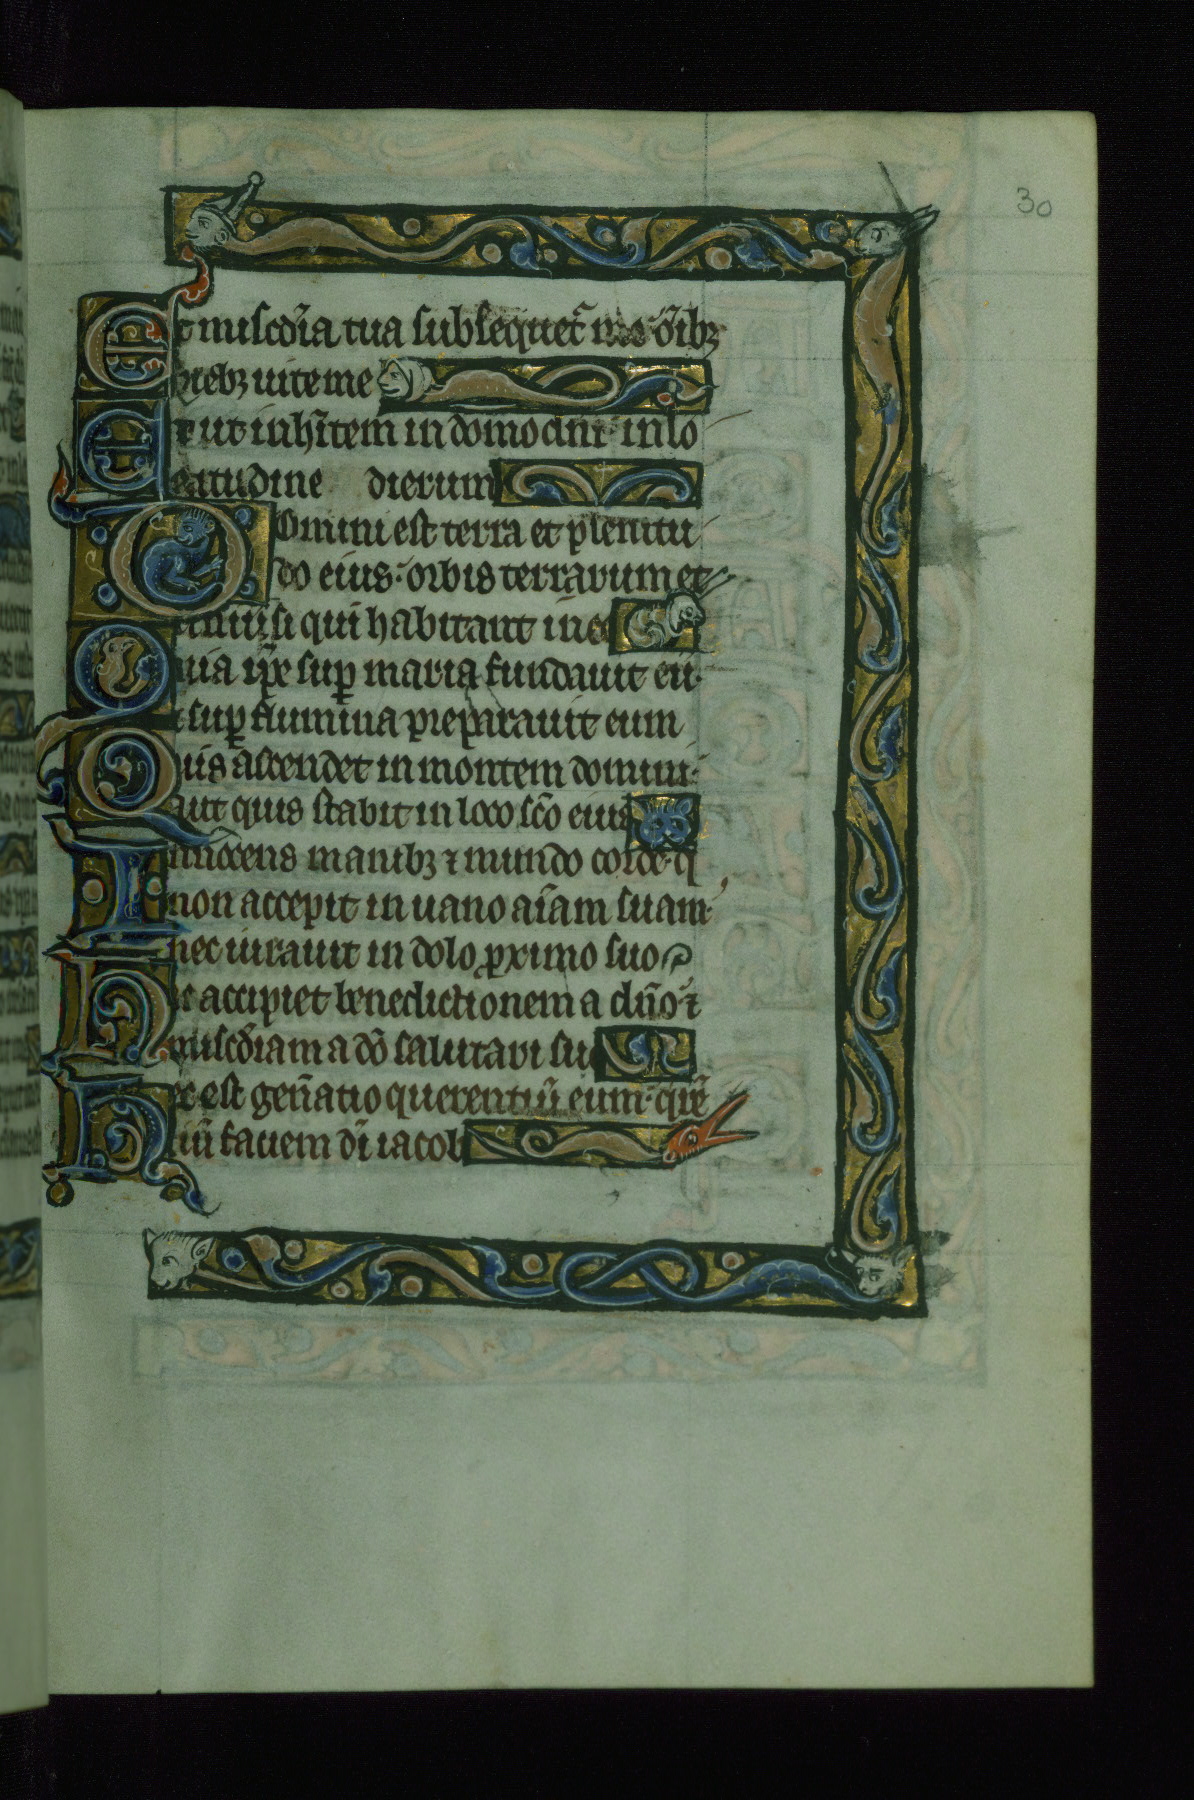 30
Et miscd̄ia tua subsequet᷑ me om̄ibꝫ
diebꝫ uite me
Et ut inh̄item in domo dn̄i· in lo
gitudine dierum
Domini est terra et plenitu
do eius· orbis terrarum et
uniūsi qui habitant in eo
Quia ip̄e suꝑ maria fundauit eū·
et suꝑ flumina preparauit eum
Quis ascendet in montem domini·
aut quis stabit in loco sc̄o eius
Innocens manibꝫ ⁊ mundo corde· q̄
non accepit in uano aīam suam·
nec iurauit in dolo ꝓximo suo
Hic accipiet benedictionem a dn̄o· ⁊
miscd̄iam a dō salutari su
Hec est gen̄atio querentiū eum· quer̄
tiū faciem dī iacob